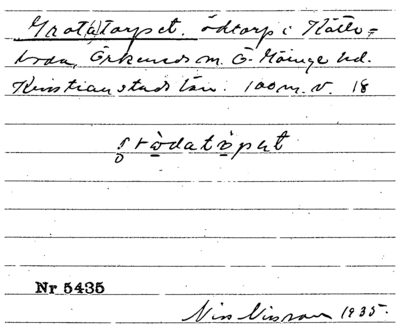 Gratatorpet. ödtorp i Kätte=
boda, Örkeneds sn. Ö. Göinge hd.
Kristianstads län. 100 m. v. 18
gròdatòpat
Nr 5435
Nils Nilsson 1935.